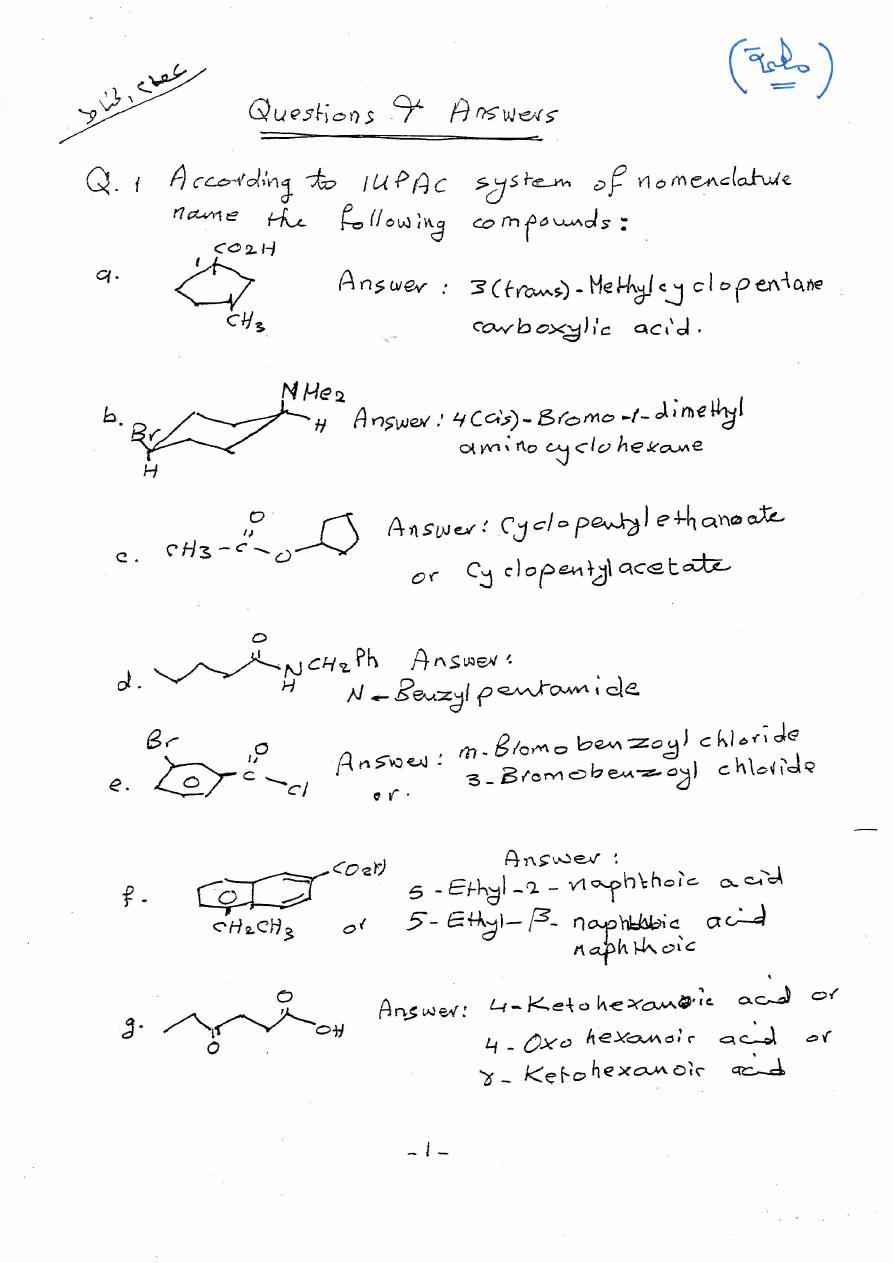 Questions & Answers
Q. 1 According to IUPAC system of nomenclature
name the following compounds:
a.
CO2H
CH3
Answer : 3(trans)-Methylcyclopentane
carboxylic acid.
b.
NMe2
H
Br
H
Answer: 4(cis)-Bromo-1-dimethyl
aminocyclohexane
c.
O
CH3-C-O
Answer: Cyclopentylethanoate
or Cyclopentylacetate
d.
O
NCH2Ph
H
Answer:
N-Benzylpentamide
e.
Br
O
C
Cl
Answer: m-Bromobenzoyl chloride
or. 3-Bromobenzoyl chloride
f.
CO2H
CH2CH3
Answer :
5-Ethyl-2-naphthoic acid
or 5-Ethyl-β-naphthoic acid
naphthoic
g.
O
OH
O
Answer: 4-Ketohexanoic acid or
4-Oxohexanoic acid or
γ-Ketohexanoic acid
-1-